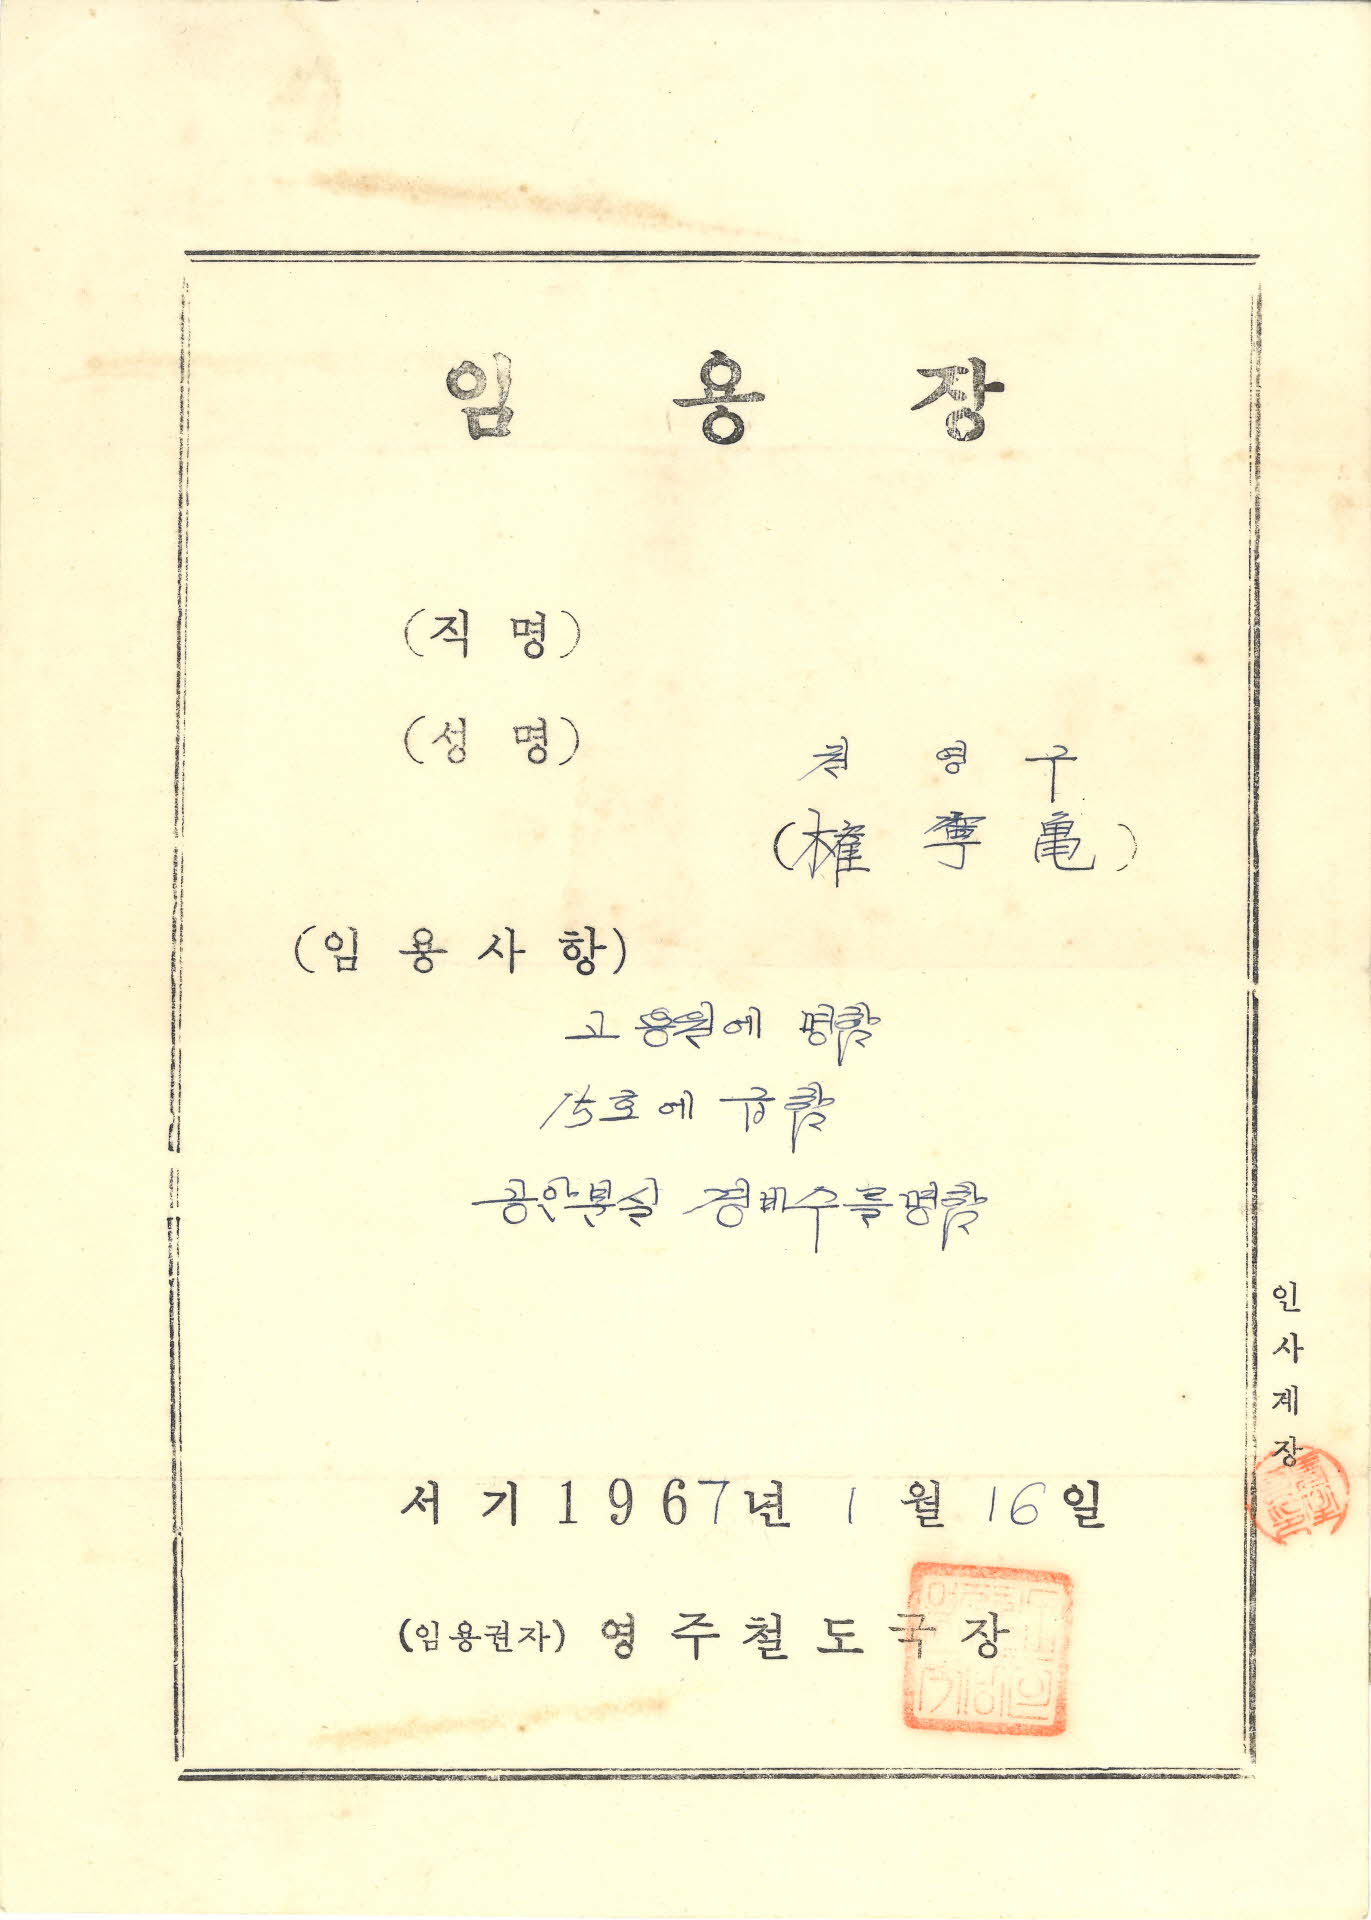 임 용 장
(직 명)
(성 명)
권 영 구
(權 寧 亀)
(임 용 사 항)
고용원에 명함
15호에 급함
공안분실 경비수를 명함
인사계장
서 기 1 9 6 7 년 1 월 16 일
(임용권자) 영 주 철 도 국 장